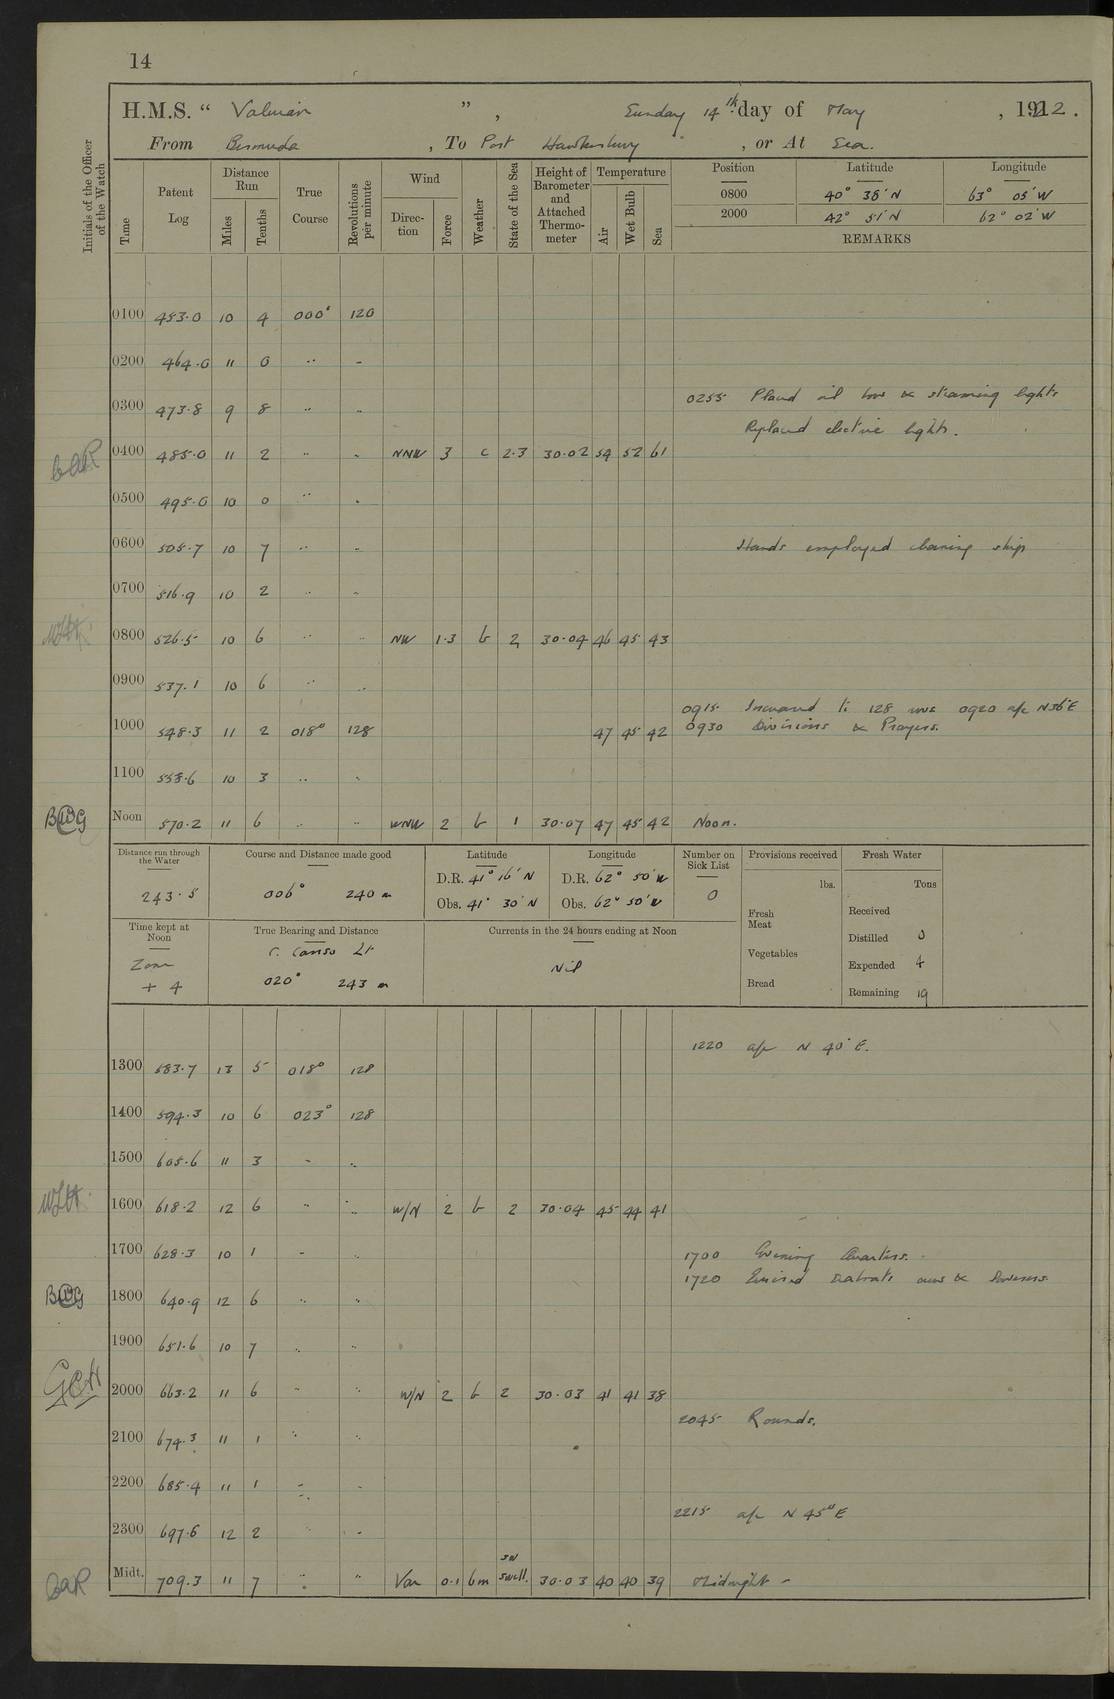 14
H.M.S. “ Valerian ” , Sunday 14th day of May , 1922.
From Bermuda , To Port Hawkesbury , or At Sea.
Initials of the Officer of the Watch
Time Patent Log Distance Run Miles Tenths True Course Revolutions per minute Wind Direction Force Weather State of the Sea Height of Barometer and Attached Thermometer Temperature Air Wet Bulb Sea Position Latitude Longitude
0800 40° 38' N 63° 05' W
2000 42° 51' N 62° 02' W
REMARKS
0100 453.0 10 4 000° 120
0200 464.0 11 0 .. -
0300 473.8 9 8 .. .. 0255 Placed oil bow & steaming lights
Replaced electric lights.
0400 485.0 11 2 .. .. NNW 3 c 2.3 30.02 54 52 61
0500 495.0 10 0 .. ..
0600 505.7 10 7 .. .. Hands employed cleaning ship
0700 516.9 10 2 .. ..
0800 526.5 10 6 .. .. NW 1.3 b 2 30.04 46 45 43
0900 537.1 10 6 .. ..
0915 Increased to 128 revs 0920 a/c N36°E
1000 548.3 11 2 018° 128 47 45 42 0930 Divisions & Prayers.
1100 558.6 10 3 .. ..
BWG Noon 570.2 11 6 .. .. WNW 2 b 1 30.07 47 45 42 Noon.
Distance run through the Water Course and Distance made good Latitude Longitude Number on Sick List Provisions received Fresh Water
243.5 006° 240 m D.R. 41° 16' N D.R. 62° 50' W 0 lbs. Tons
Obs. 41° 30' N Obs. 62° 50' W Fresh Meat Received
Time kept at Noon True Bearing and Distance Currents in the 24 hours ending at Noon Distilled 0
Zone C. Canso Lt Nil Vegetables Expended 4
+ 4 020° 243 m Bread Remaining 19
1220 a/c N 40° E.
1300 583.7 13 5 018° 128
1400 594.3 10 6 023° 128
1500 605.6 11 3 - ..
1600 618.2 12 6 .. .. W/N 2 b 2 30.04 45 44 41
1700 628.3 10 1 - .. 1700 Evening Quarters.
1720 Exercised seaboats crews &
BWG 1800 640.9 12 6 .. ..
1900 651.6 10 7 .. ..
GCH 2000 663.2 11 6 .. .. W/N 2 b 2 30.03 41 41 38
2045 Rounds.
2100 674.3 11 1 .. ..
2200 685.4 11 1 .. ..
2215 a/c N 45° E
2300 697.6 12 2 .. ..
Midt. 709.3 11 7 .. .. Var 0.1 bm SW swell. 30.03 40 40 39 Midnight -